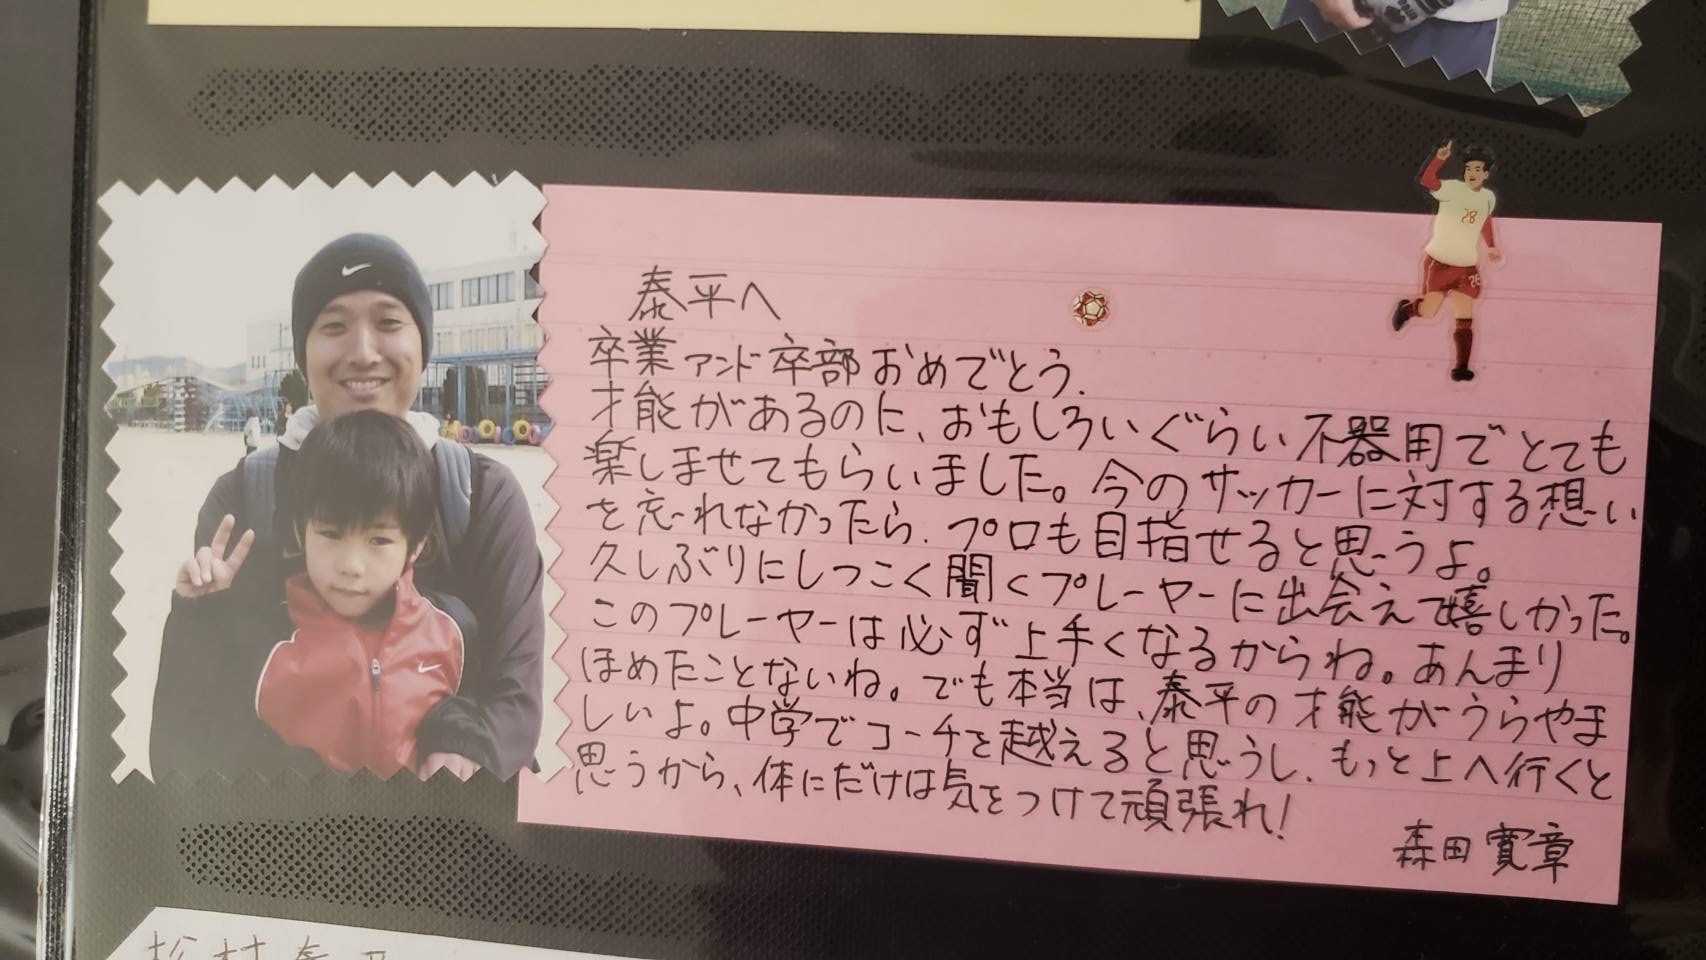 泰平へ
卒業アンド卒部おめでとう.
才能があるのに、おもしろいぐらい不器用でとても
楽しませてもらいました。今のサッカーに対する想い
を忘れなかったら、プロも目指せると思うよ。
久しぶりにしつこく聞くプレーヤーに出会えて嬉しかった。
このプレーヤーは必ず上手くなるからね。あんまり
ほめたことないね。でも本当は、泰平の才能がうらやま
しいよ。中学でコーチを越えると思うし、もっと上へ行くと
思うから、体にだけは気をつけて頑張れ!
森田寛章
28
28